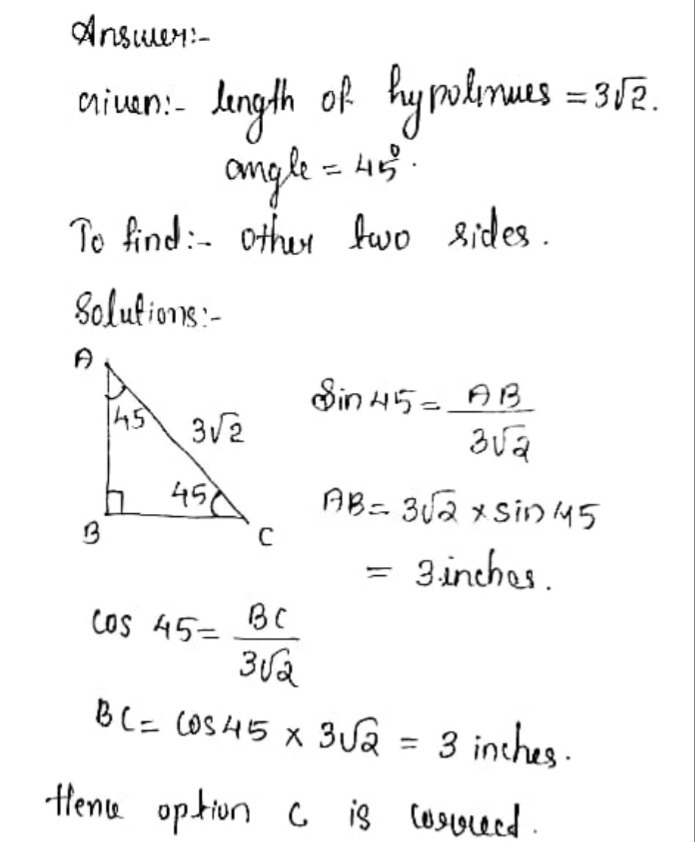 Answer:-
Given:- length of hypotinues = 3√2.
angle = 45°.
To find:- other two sides.
Solutions:-
A
45
3√2
45
B
C
Sin 45 = AB / 3√2
AB = 3√2 × sin 45
= 3 inches.
cos 45 = BC / 3√2
BC = cos 45 × 3√2 = 3 inches.
Hence option C is correct.